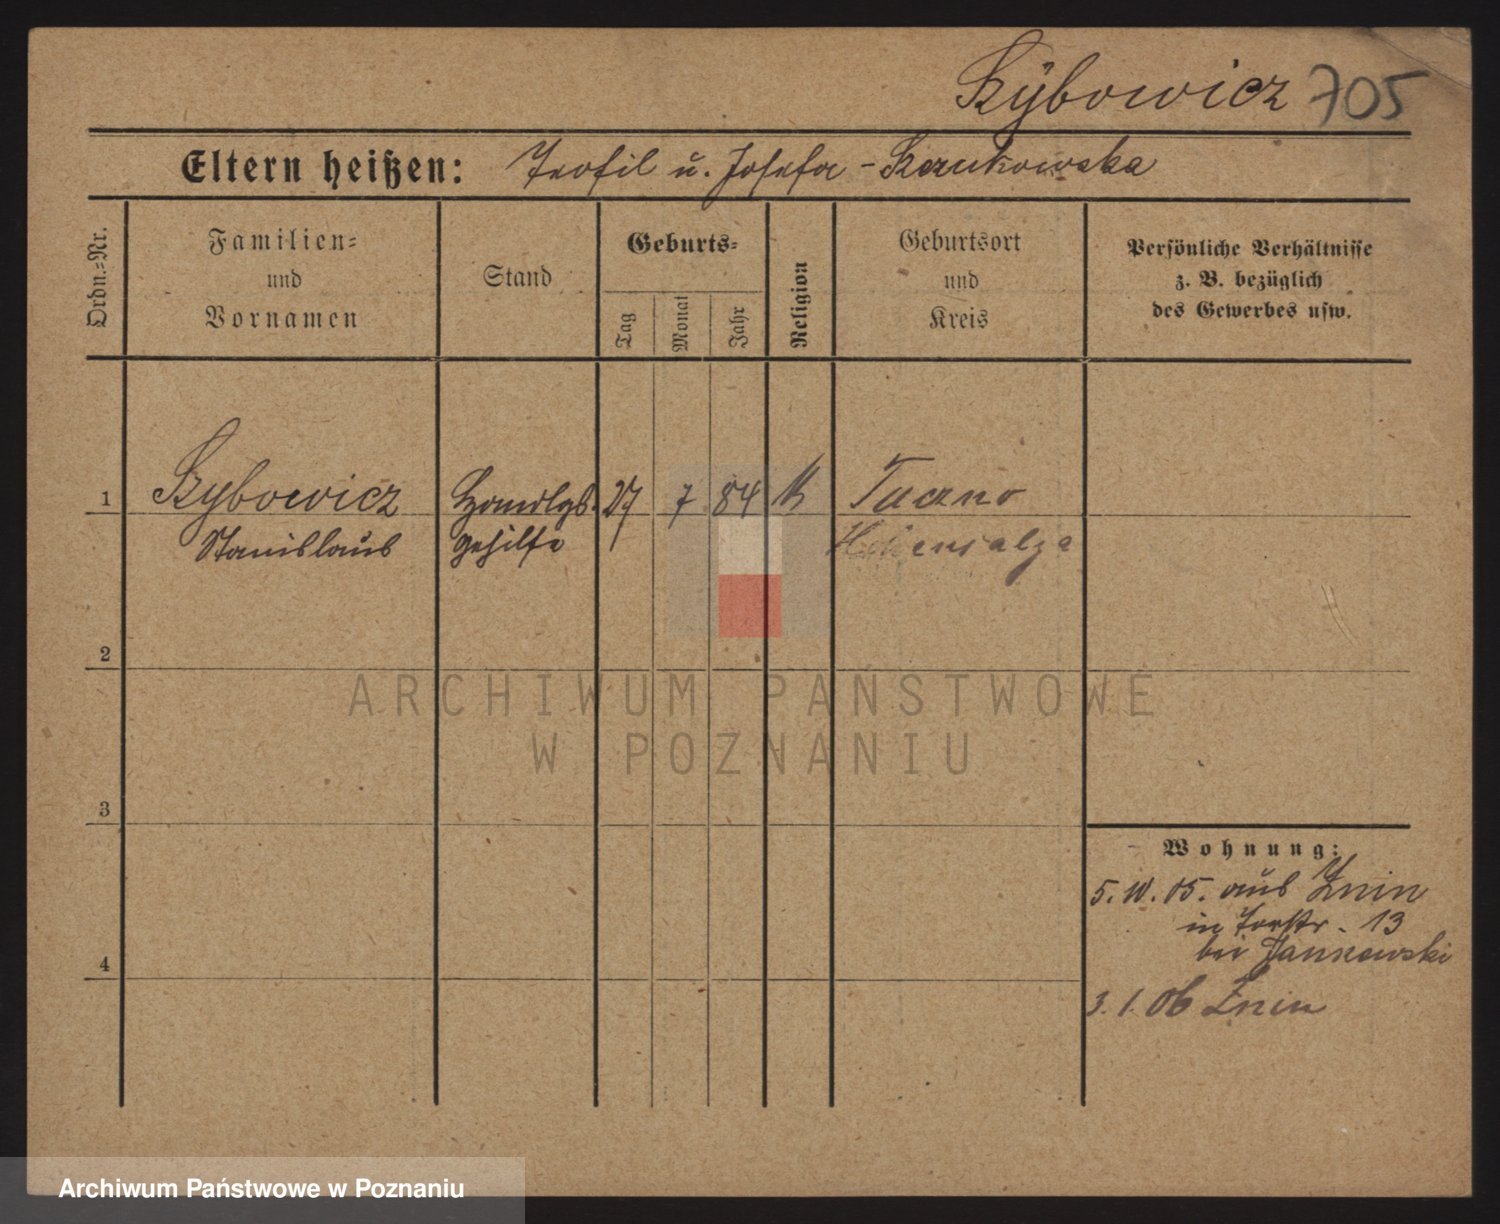 Szybowicz 705
Eltern heißen: Teofil u. Josefa - Szczukowska
Ordn.-Nr.
Familien-
und
Vornamen
Stand
Geburts-
Tag
Monat
Jahr
Religion
Geburtsort
und
Kreis
Persönliche Verhältnisse
z. B. bezüglich
des Gewerbes usw.
1 Szybowicz Handlgs. 27 7 84 K Tuczno
Stanislaus gehilfe Hohensalza
2
ARCHIWUM PAŃSTWOWE
W POZNANIU
3
Wohnung:
5. 10. 05. aus Znin
in Torstr. 13
bei Jankowski
4
3. 1. 06 Znin
Archiwum Państwowe w Poznaniu